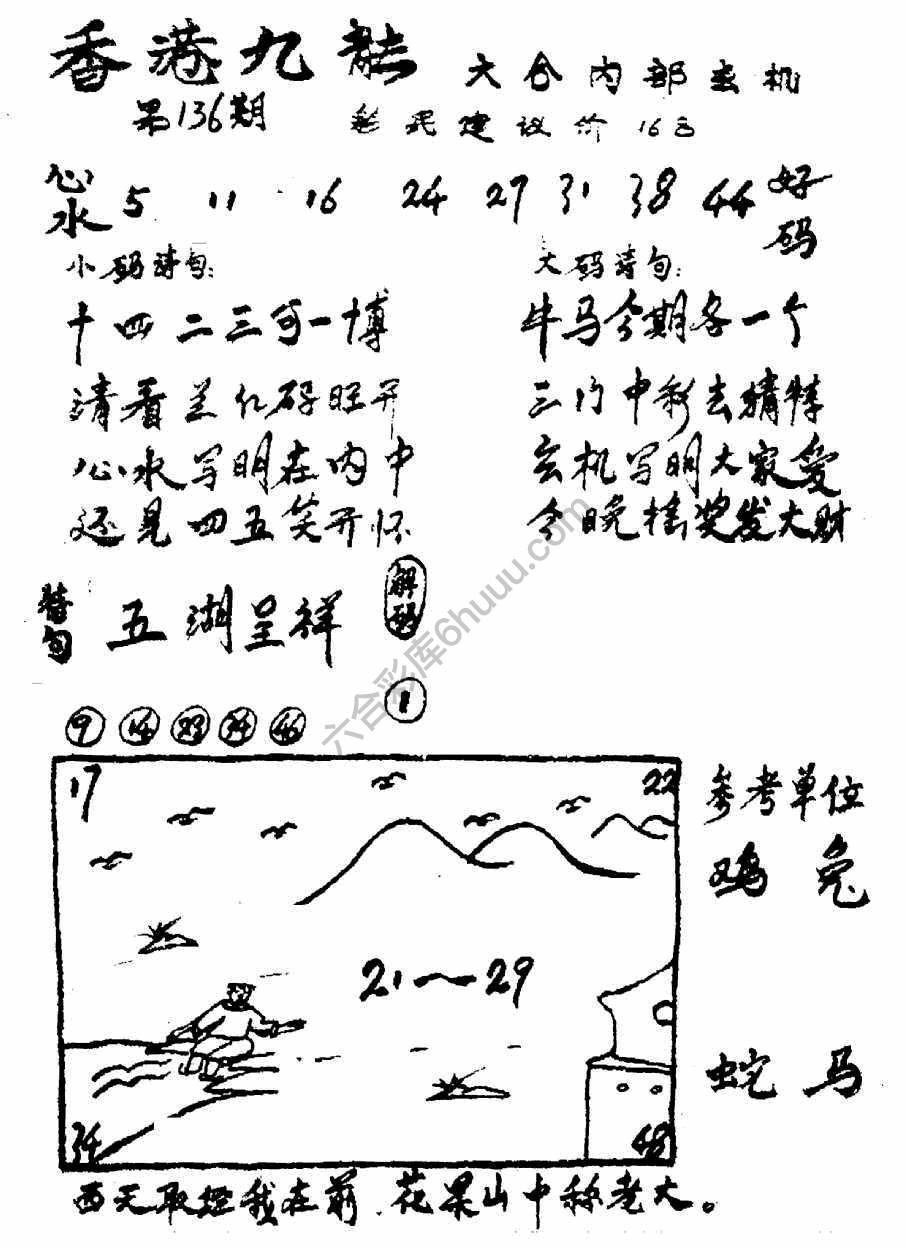 香港九龙 六合内部玄机
第136期 彩民建议价16元
心水 5 11 16 24 27 31 38 44 好码
小码诗句:
十四二三可一博
清看兰化码旺开
心水写明在内中
还见四五笑开怀
大码诗句:
牛马今期各一个
三门中彩去精特
玄机写明大家爱
今晚摇奖发大财
特句 五湖呈祥 解码
1
9 14 23 34 46
17 22
21～29
34 48
参考单位
鸡兔
蛇马
西天取经我在前.花果山中称老大。
六合彩库6huuu.com